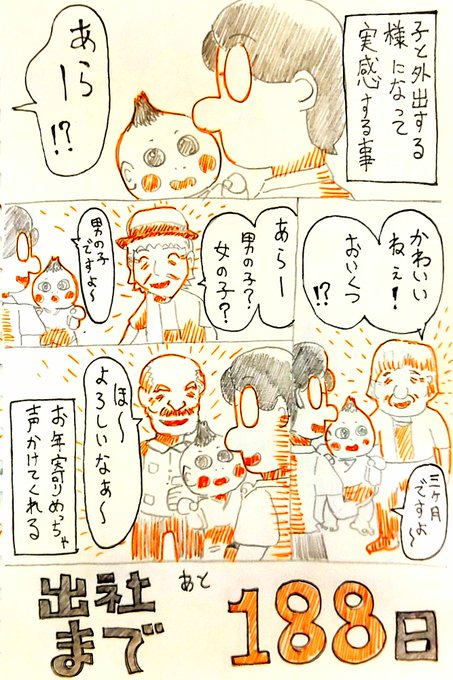 子と外出する
様になって
実感する事
あらー!?
かわいい
ねぇ!
おいくつ
!?
三ヶ月
ですよ〜
あらー
男の子?
女の子?
男の子
ですよ〜
ほ〜
よろしいなぁ〜
お年寄りめっちゃ
声かけてくれる
出社
まで
あと
188日